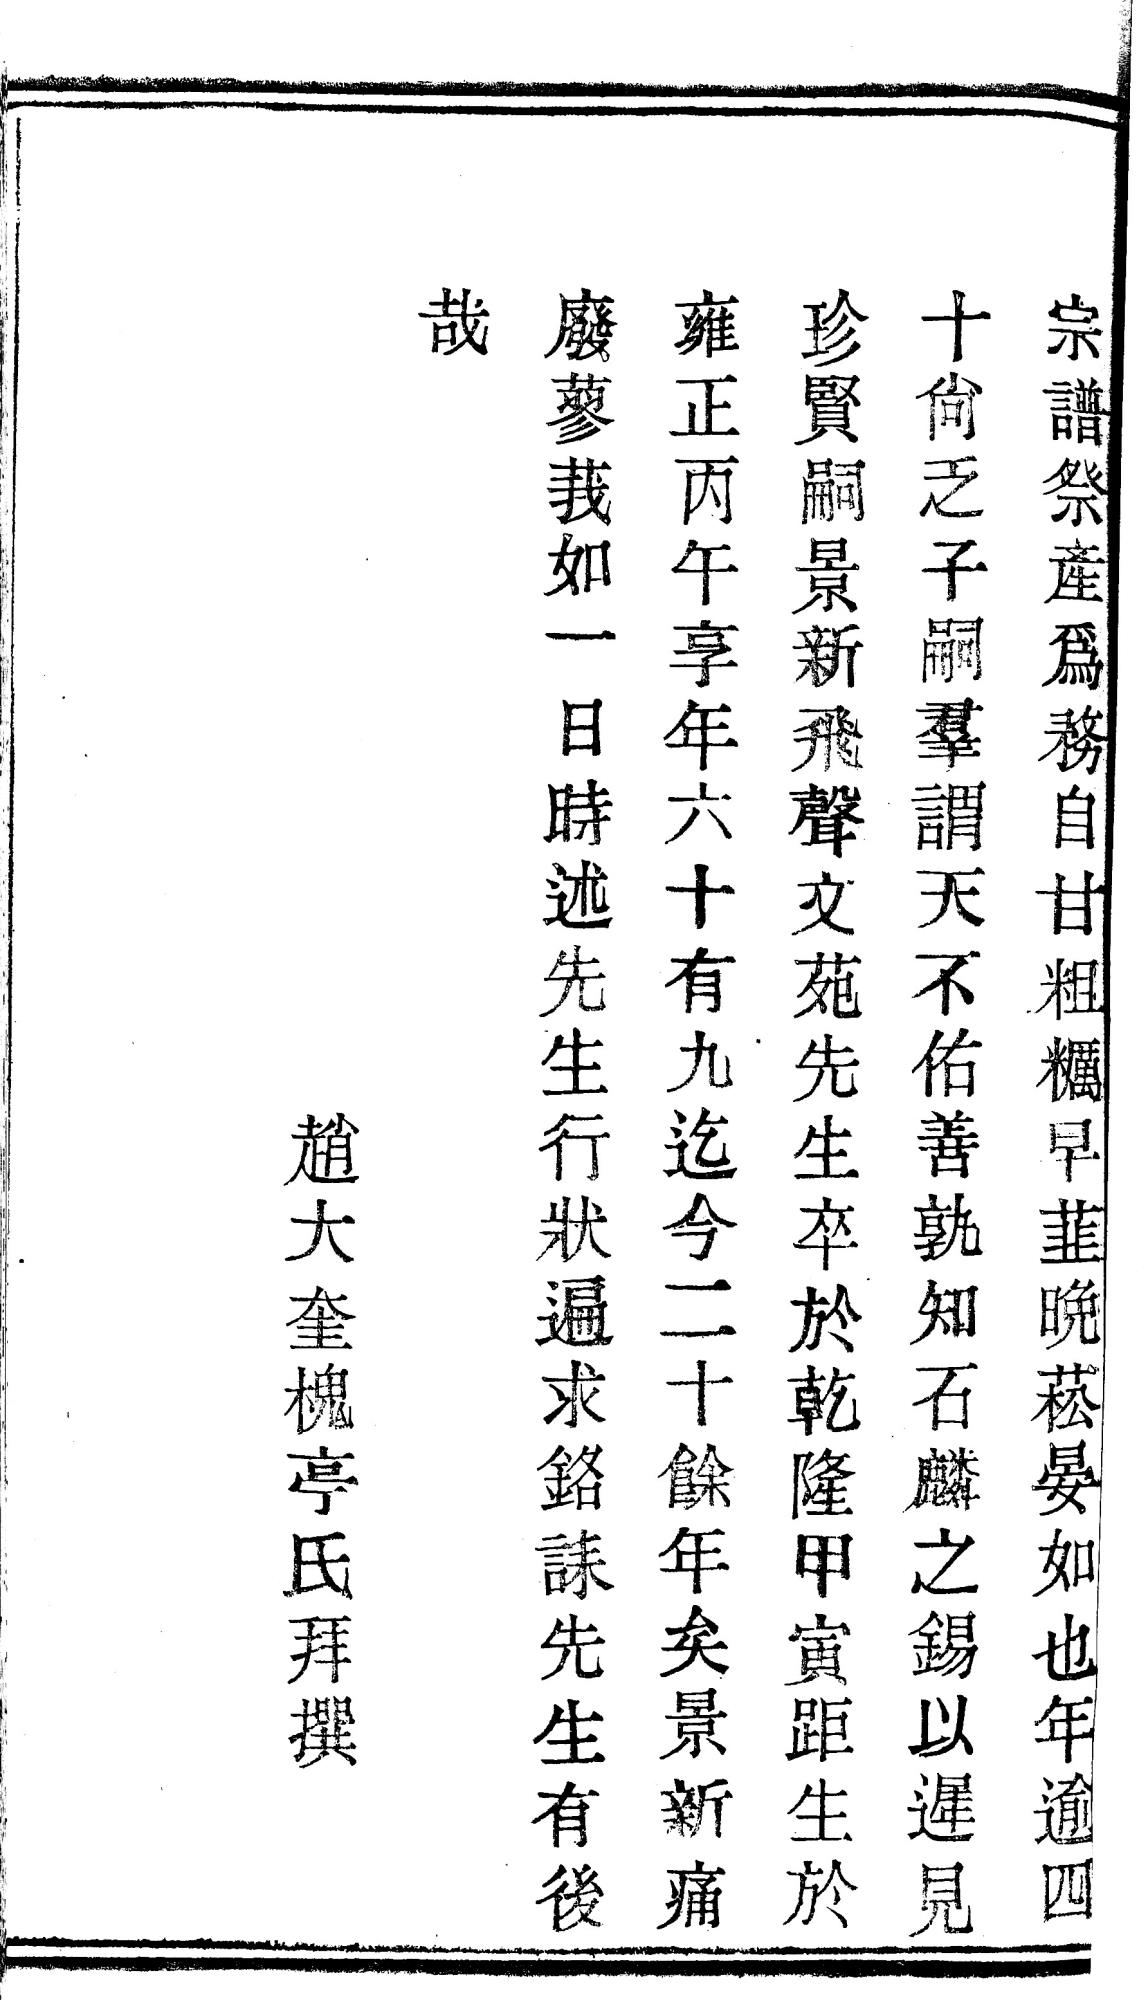 宗譜祭產爲務自甘粗糲早韮晩菘晏如也年逾四
十尙乏子嗣羣謂天不佑善孰知石麟之錫以遲見
珍賢嗣景新飛聲文苑先生卒於乾隆甲寅距生於
雍正丙午享年六十有九迄今二十餘年矣景新痛
廢蓼莪如一日時述先生行狀遍求銘誄先生有後
哉
趙大奎槐亭氏拜撰